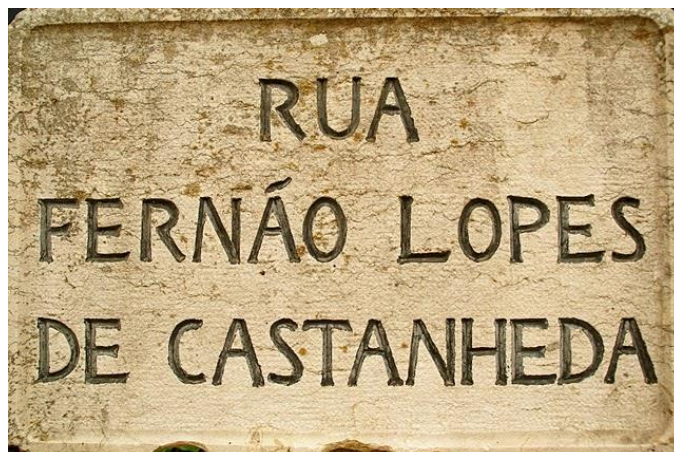 RUA
FERNÃO LOPES
DE CASTANHEDA